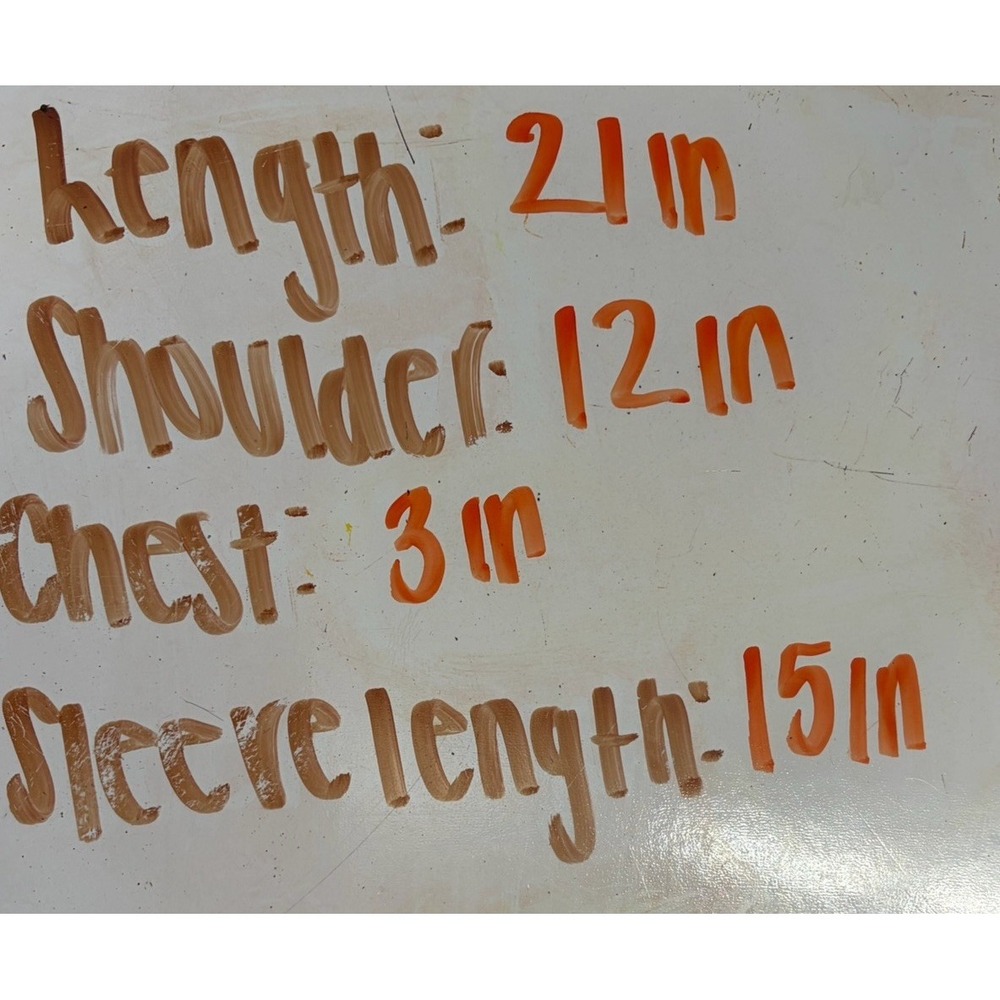 Length: 21in
Shoulder: 12in
Chest: 3in
Sleeve length: 15in